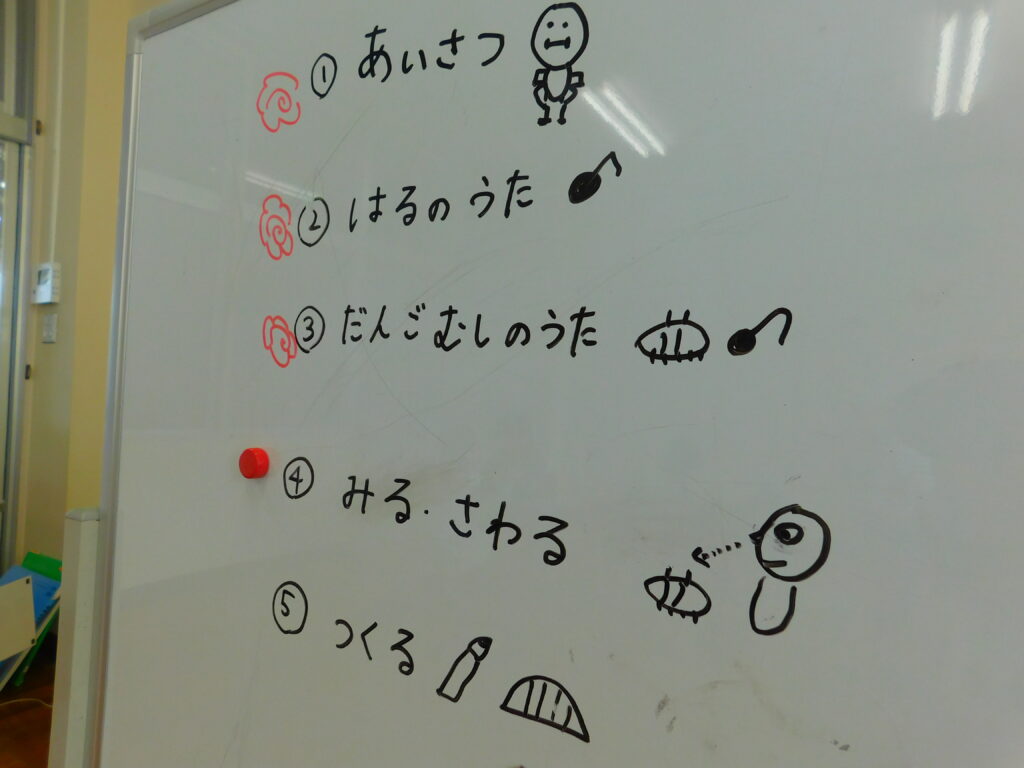 ① あいさつ
② はるのうた
③ だんごむしのうた
④ みる・さわる
⑤ つくる